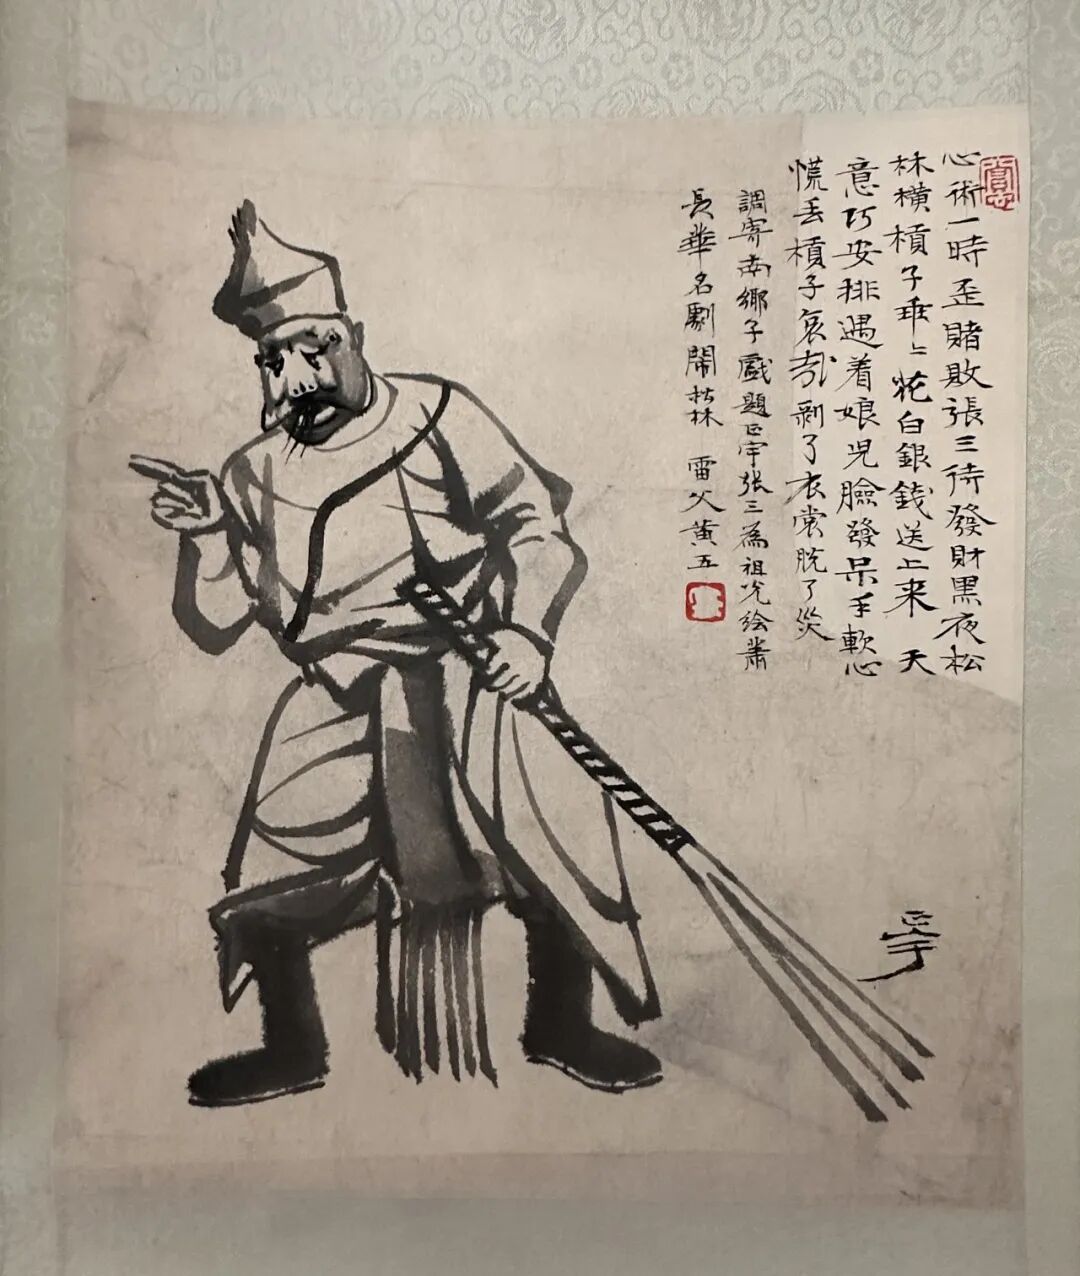 心術一時歪賭敗張三待發財黑夜松
林橫槓子乖〻花白銀錢送上来 天
意巧安排遇着娘児臉發呆手軟心
慌丢槓子哀哉剥了衣裳脱了災
調寄南鄉子戲題正宇張三為祖光绘蕭
長華名劇鬧松林 雷父黄五
正宇